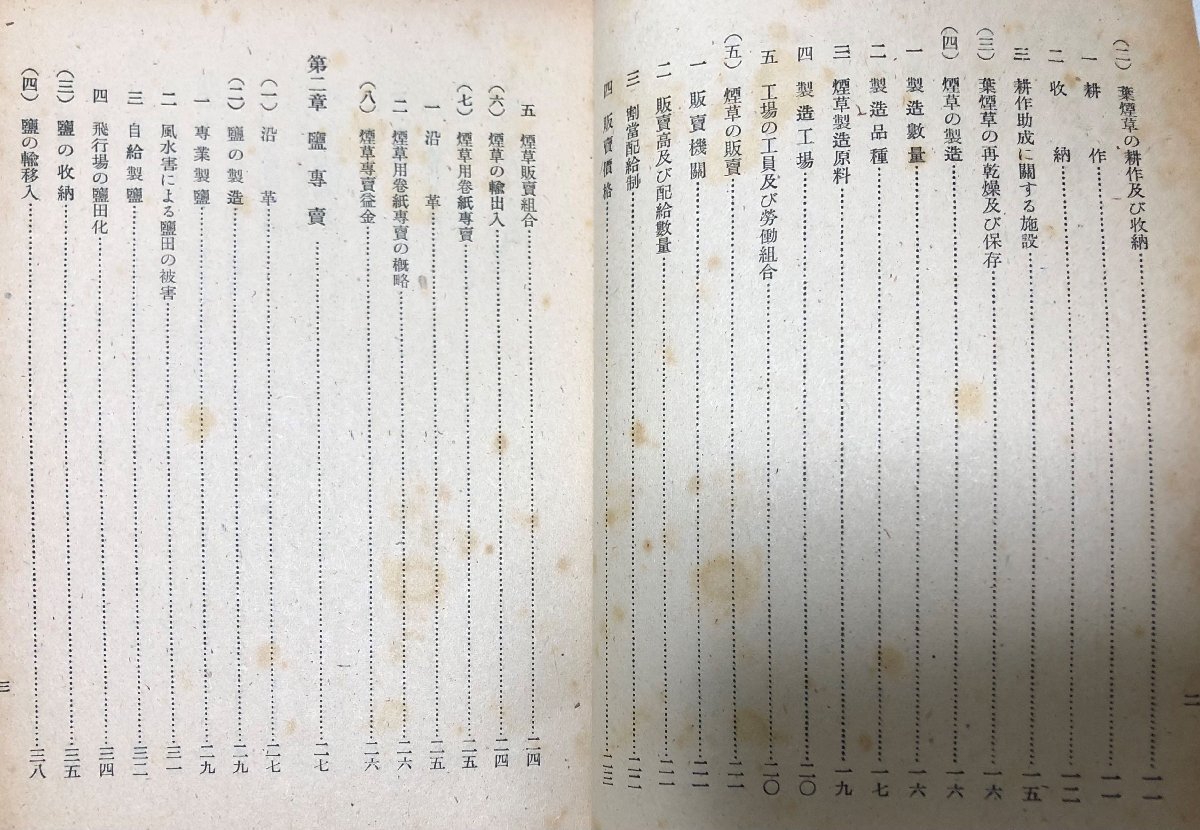 (二) 葉煙草の耕作及び收納……一一
一 耕作……一一
二 收納……一二
三 耕作助成に關する施設……一五
(三) 葉煙草の再乾燥及び保存……一六
(四) 煙草の製造……一六
一 製造數量……一六
二 製造品種……一七
三 煙草製造原料……一九
四 製造工場……二〇
五 工場の工員及び勞働組合……二〇
(五) 煙草の販賣……二一
一 販賣機關……二一
二 販賣高及び配給數量……二一
三 割當配給制……二二
四 販賣價格……二三
二
五 煙草販賣組合……二四
(六) 煙草の輸出入……二四
(七) 煙草用卷紙專賣……二五
一 沿革……二五
二 煙草用卷紙專賣の槪略……二六
(八) 煙草專賣益金……二六
第二章 鹽專賣……二七
(一) 沿革……二七
(二) 鹽の製造……二九
一 專業製鹽……二九
二 風水害による鹽田の被害……三一
三 自給製鹽……三二
四 飛行場の鹽田化……三四
(三) 鹽の收納……三五
(四) 鹽の輸移入……三八
三